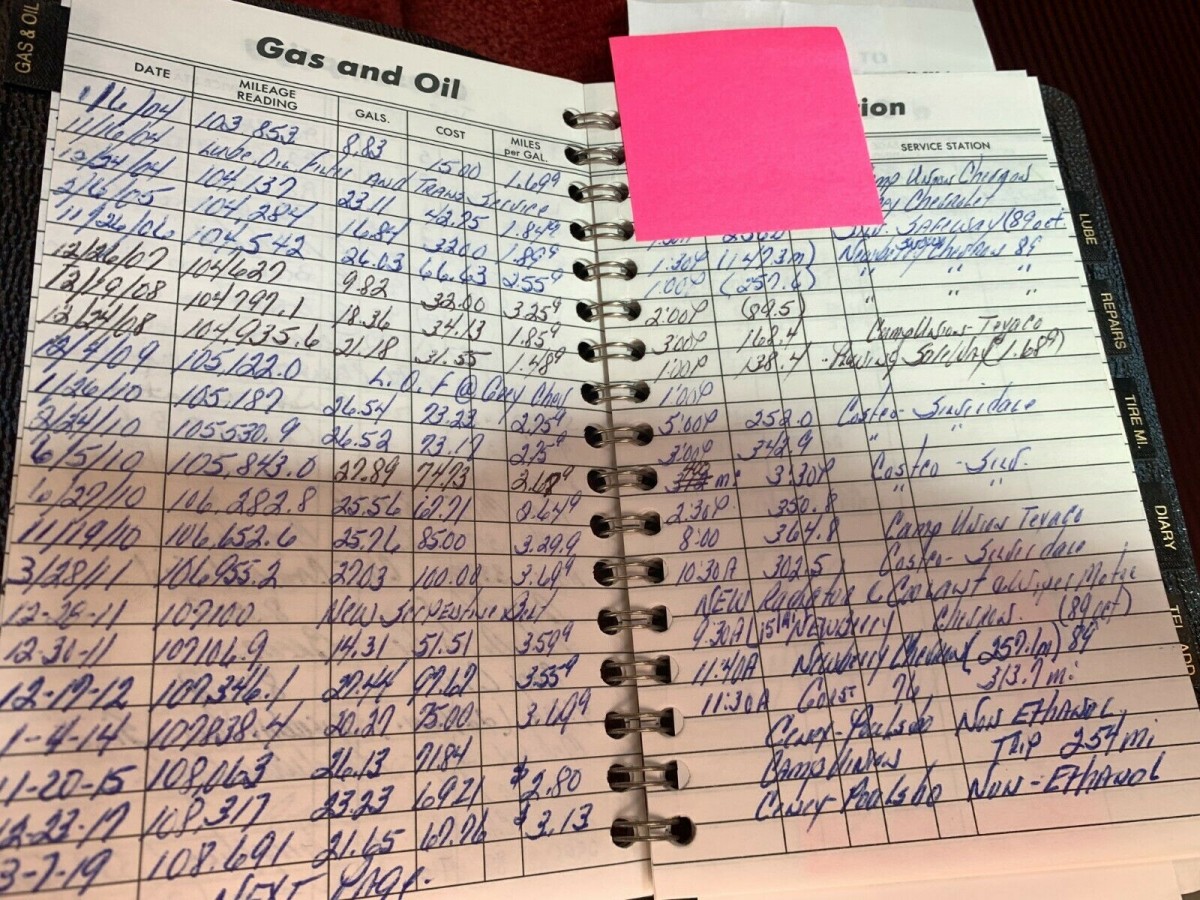 GAS & OIL
Gas and Oil
DATE MILEAGE READING GALS. COST MILES per GAL.
1/6/04 103,853 8.83 15.00 1.69⁹
11/16/04 Lube, Oil, Filter AND TRANS Service
12/24/04 104,137 23.11 42.75 1.84⁹
104,284 16.84 32.00 1.89⁹
11/26/06 104,542 26.03 66.63 2.55⁹
12/26/07 104627 9.82 32.00 3.25⁹
12/19/08 104797.1 18.36 34.13 1.85⁹
12/24/08 104,935.6 21.18 31.55 1.48⁹
12/4/09 105,122.0 L.O.F @
1/26/10 105,187 26.54 73.23 2.75⁹
2/24/10 105530.9 26.52 73.17 2.75⁹
6/5/10 105,843.0 27.89 74.73
6/27/10 106,282.8 25.56 67.71 2.64⁹
11/19/10 106,652.6 25.76 85.00 3.29.9
3/28/11 106955.2 27.03 100.00 3.69⁹
12-26-11 107100 New Serpentine Belt
12-30-11 107106.9 14.31 51.51 3.59⁹
12-17-12 107,346.1 27.44 97.67 3.55⁹
1-4-14 107838.4 20.27 75.00 3.69⁹
11-20-15 108,063 26.13 71.84
12-23-17 108,317 23.23 69.71 $2.80
3-7-19 108.691 21.65 67.76 $3.13
NEXT PAGE.
tion
SERVICE STATION
Union Chevron
Chevrolet
Safeway (89 oct.
1:30P (147.3m) Chevron 89
1:00P (257.6) " "
2:00P (89.5) " " "
3:00P 168.4 Camp Union - Texaco
1:00P 138.4 Safeway (1.68⁹)
1:00P
5:00P 252.0 Costco - Silverdale
3:00P 342.9 " "
mi 3:30P Costco - Silv.
2:30P 350.8 " "
8:00 364.8 Camp Union Texaco
10:30A 302.5 Costco - Silverdale
NEW Radiator & Coolant
9:30A NEWberry Chevron (89 oct)
11:40A Newberry Chevron (257.1m) 89
11:30A Coast 76 313.7 mi
Poulsbo Non ETHANOL
Camp Union Trip 254 mi
Poulsbo Non-Ethanol
LUBE
REPAIRS
TIRE MI.
DIARY